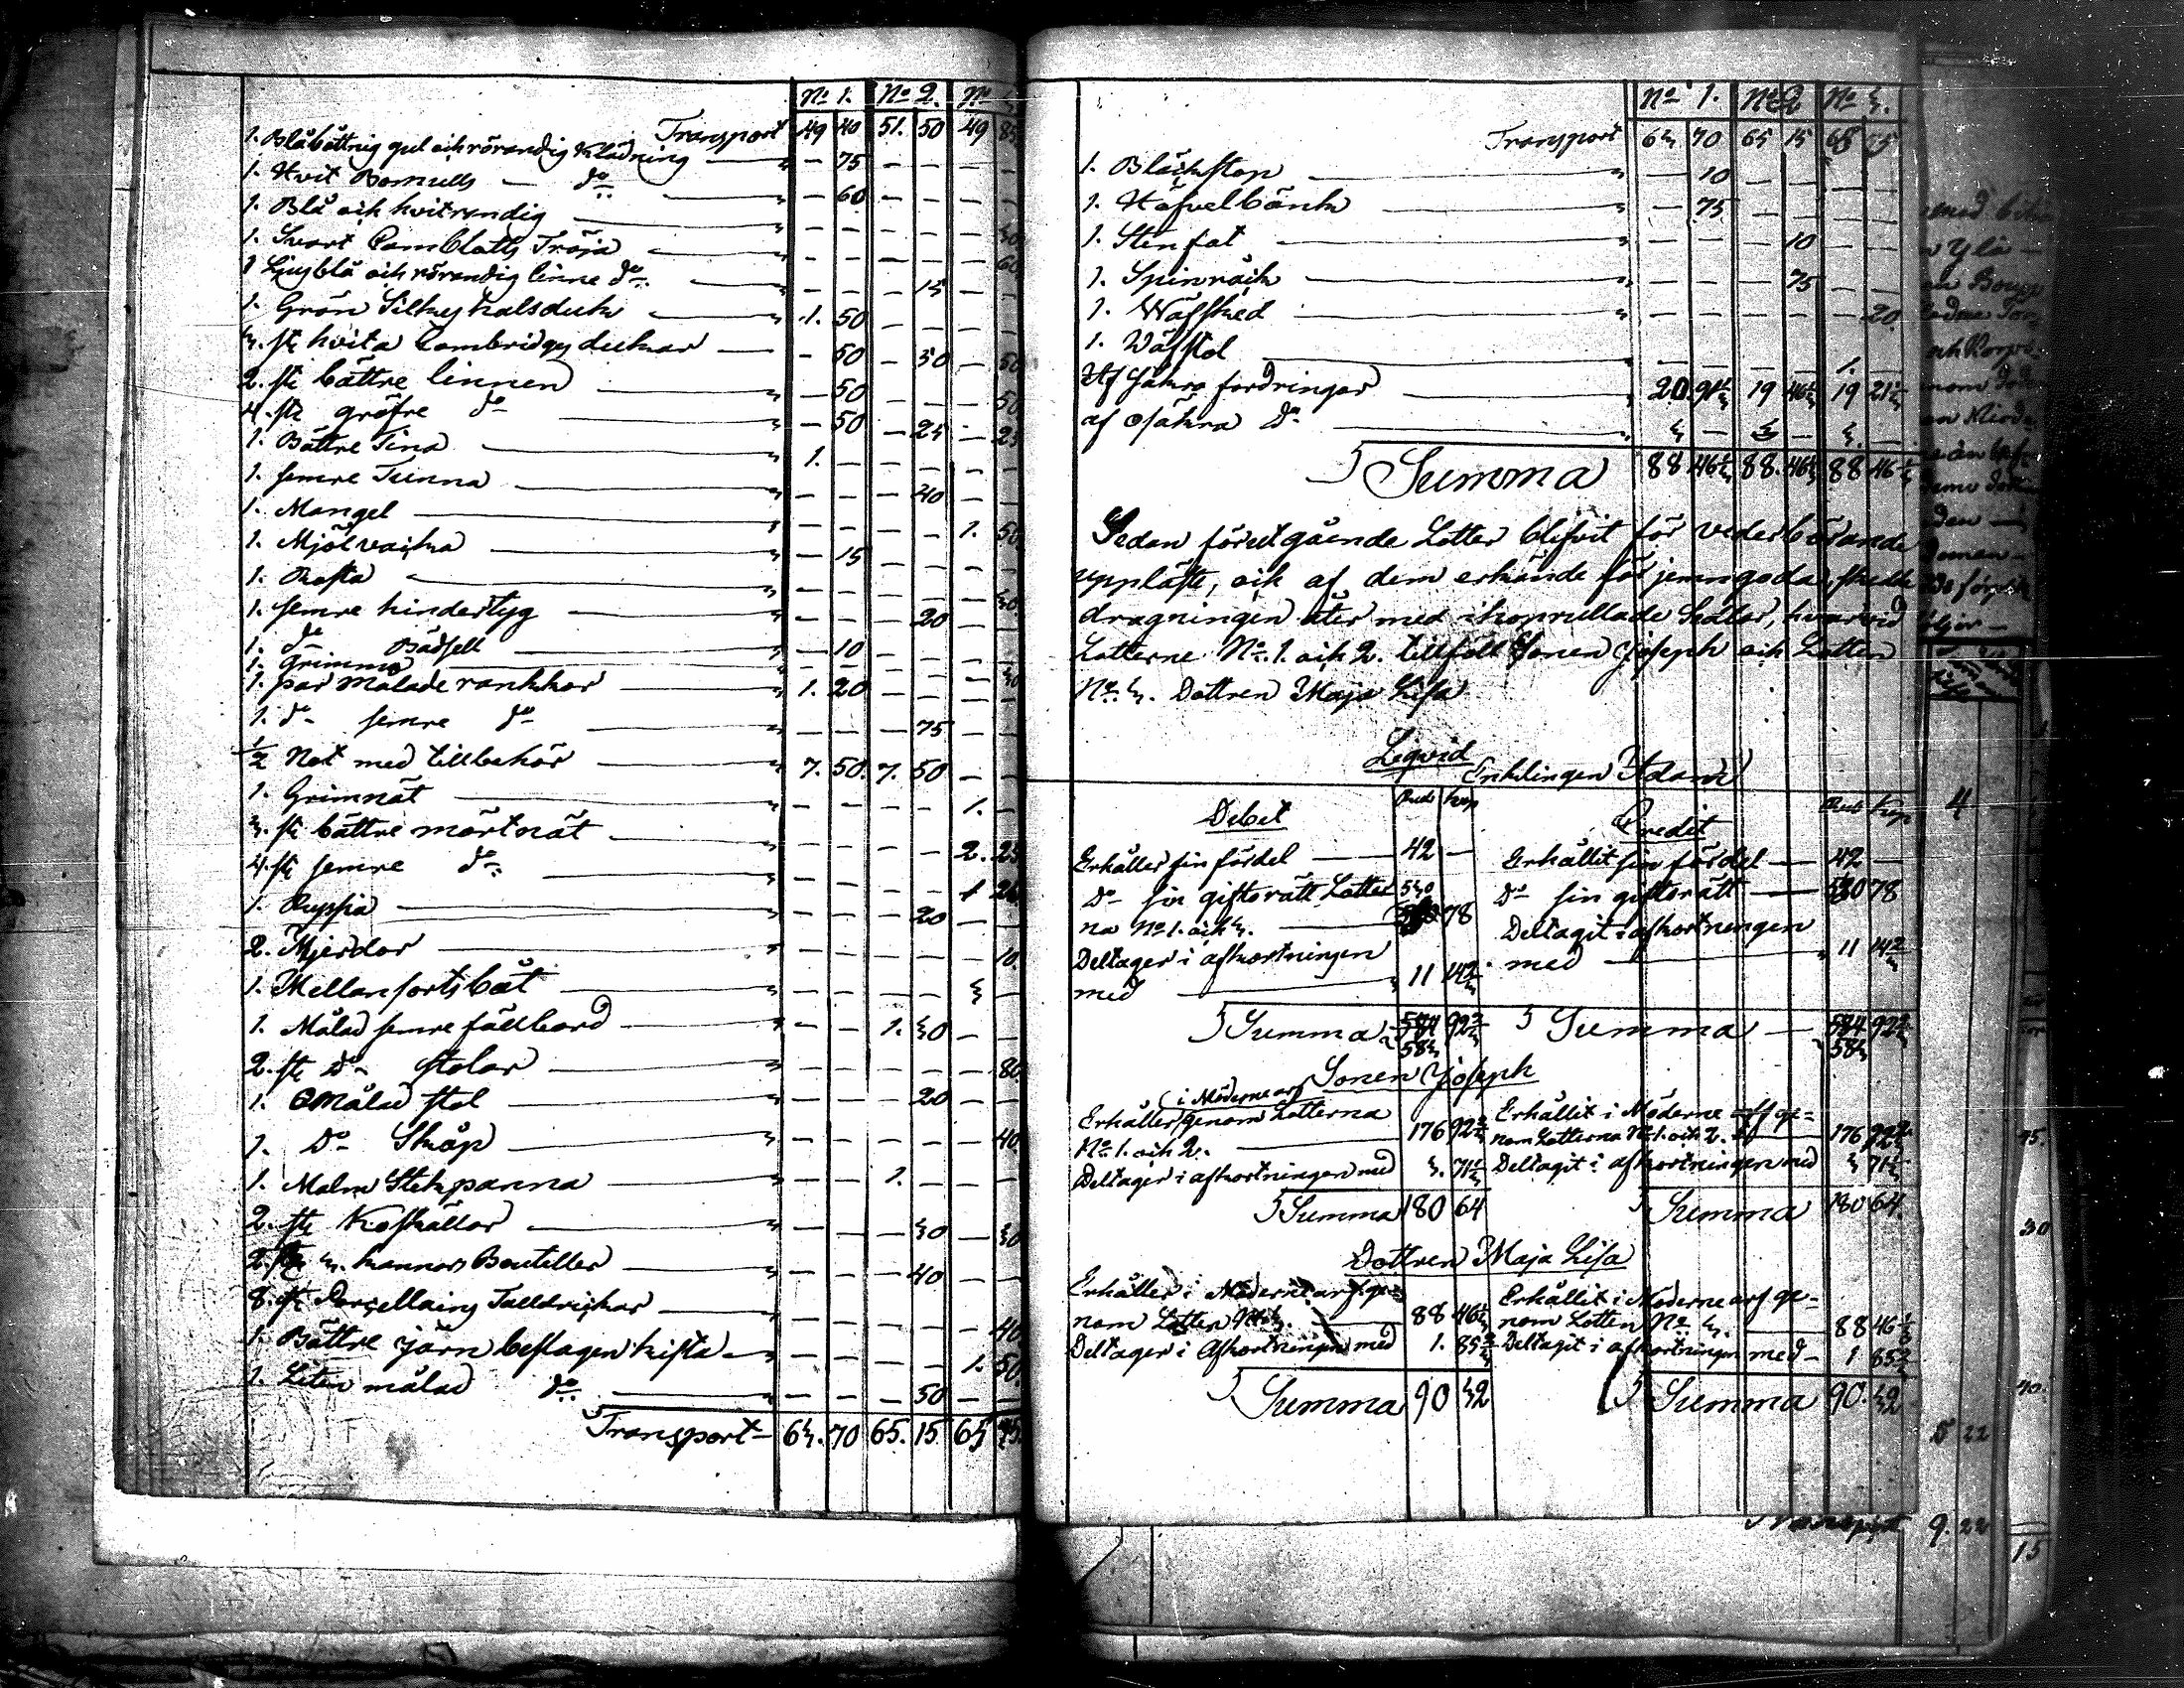 No 1. No 2. No
Transport 49 40 51. 50 49 85
1. Blåbåttnig gul och rörandig Klädning — 75
1. Hvit Bomulls do — 60
1. Blå och hvitrandig 30
1. Svart Camblotts Tröja 60
1 Ljusblå och rörandig linne do 15
1. Grön Silkeshalsduk 1. 50
3. st. hvita Cambridge dukar 50 30 50
2. st. bättre linnen 50 50
4. st. gröfre do 50 25 25
1. Bättre Tina 1.
1. semre Tunna 40
1. Mangel 1. 50
1. Mjölvacka 15
1. 30
1. semre hindertyg 20
1. do Bädfell 10
1. Grimma 30
1. par målade rankkar 1. 20
1. do semre do 75
1/2 Not med tillbehör 7. 50. 7. 50
1. Grimnät 1.
3. st. bättre mörtnät 2. 25
4. st. semre do 1
1. Ryssia 20
2. Mjerdor 10
1. Mellansorts båt 3
1. Målad semre fällbord 1. 30
2. st. do stolar 80
1. Omålad stol 20
1. Do Skåp 40
1. Malm Stekpanna 1.
2. st. Koskällor 30 30
2. 3. kannors Bouteiller 40
8. st. Porcellains Talldrickar 40
1. Bättre järn beslagen kista 1. 50
1. Liten målad do 50
Transport 63. 70 65. 15 65 75
No 1. No 2 No 3.
Transport 63 70 65 15 65 75
1. Bläckstop 10
1. Höfvelbänk 75
1. Stenfat 10
1. Spinråck 75
1. Wäfsked 20
1. Wäfstol 1.
Af säkra fordringar 20. 91 1/3 19 46 1/3 19 21 1/3
af osäkra Do 3 — 3 — 3.
Summa 88 46 1/3 88. 46 1/3 88 46 1/3
Sedan förutgående Lotter blifvit för vederbörande
uppläste, och af dem erkände för jemngoda, skedde
dragningen åter med ihoprullade sedlar, hvarvid
Lotterne No. 1. och 2. tillföll Sonen Joseph och Lotten
No. 3. Dottren Maja Lisa
Liqvid
Enklingen Adam
Debet Rub Kop Credit Rub Kop
Erhåller sin fördel — 42 — Erhållit sin fördel — 42 —
Do sin giftorätt Lotter 530 Do sin giftorätt — 530 78
na No 1. och 3. 78 Deltagit i afkortningen
Deltager i afkortningen med 11 14 2/3
med 11 14 2/3
Summa 584 92 2/3 Summa — 584 92 2/3
583 583
Sonen Joseph
i Möderne arf
Erhåller genom Lotterna Erhållit i Möderne arf ge=
No. 1. och 2. 176 92 2/3 nom Lotterna No 1. och 2. 176 92 2/3
Deltager i afkortningen med 3. 71 1/3 Deltagit i afkortningen med 3 71 1/3
Summa 180 64 Summa 180 64
Dottren Maja Lisa
Erhåller i Möderne arf ge= Erhållit i Möderne arf ge=
nom Lotten No 3. 88 46 1/3 nom Lotten No 3. 88 46 1/3
Deltager i Afkortningen med 1. 85 2/3 Deltagit i afkortningen med — 1 85 2/3
Summa 90 32 Summa 90. 32